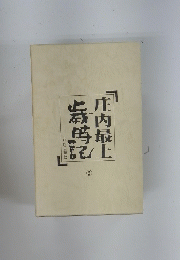 庄内最上
歳時記